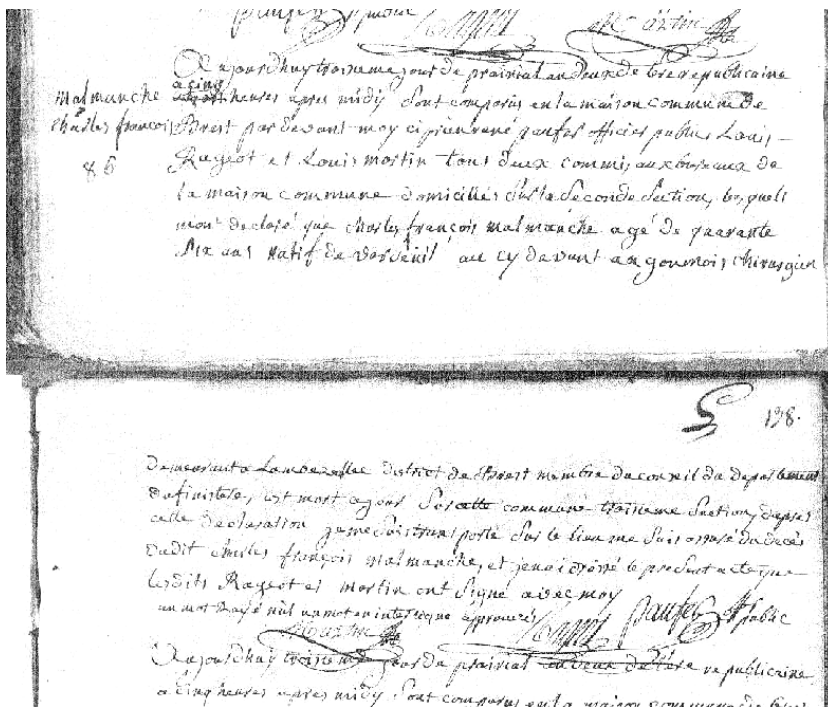 panfet off public
Martin
Malmanche
Charles françois
86
Aujourdhuy troisieme jour de prairial an deux de l'ere republicaine
a cinq
heures apres midy Sont comparus en la maison commune de
Brest par devant moy ciprien rené panfet officier public Louis
Rageot et Louis mortin tous deux commis aux bureaux de
la maison commune domiciliés Sur la Seconde Section, lesquels
mont declaré que charles françois malmanche agé de quarante
Six ans natif de au cy devant angoumois chirurgien
198.
Demeurant a Lambezellec District de Brest membre du conseil du departement
du finistere, est mort ce jour Sur cette commune troisieme Section, d'apres
cette Declaration je me Suis transporté Sur le lieu me Suis assuré du decès
dudit charles françois malmanche, et jen ai le present acte que
lesdits Rageot et mortin ont Signé avec moy
un mot Rayé nul un mot en interligne approuvés
Martin panfet off public
Aujourdhuy troisieme jour de prairial an deux de l'ere republicaine
a cinq heures apres midy Sont comparus en la maison commune de brest